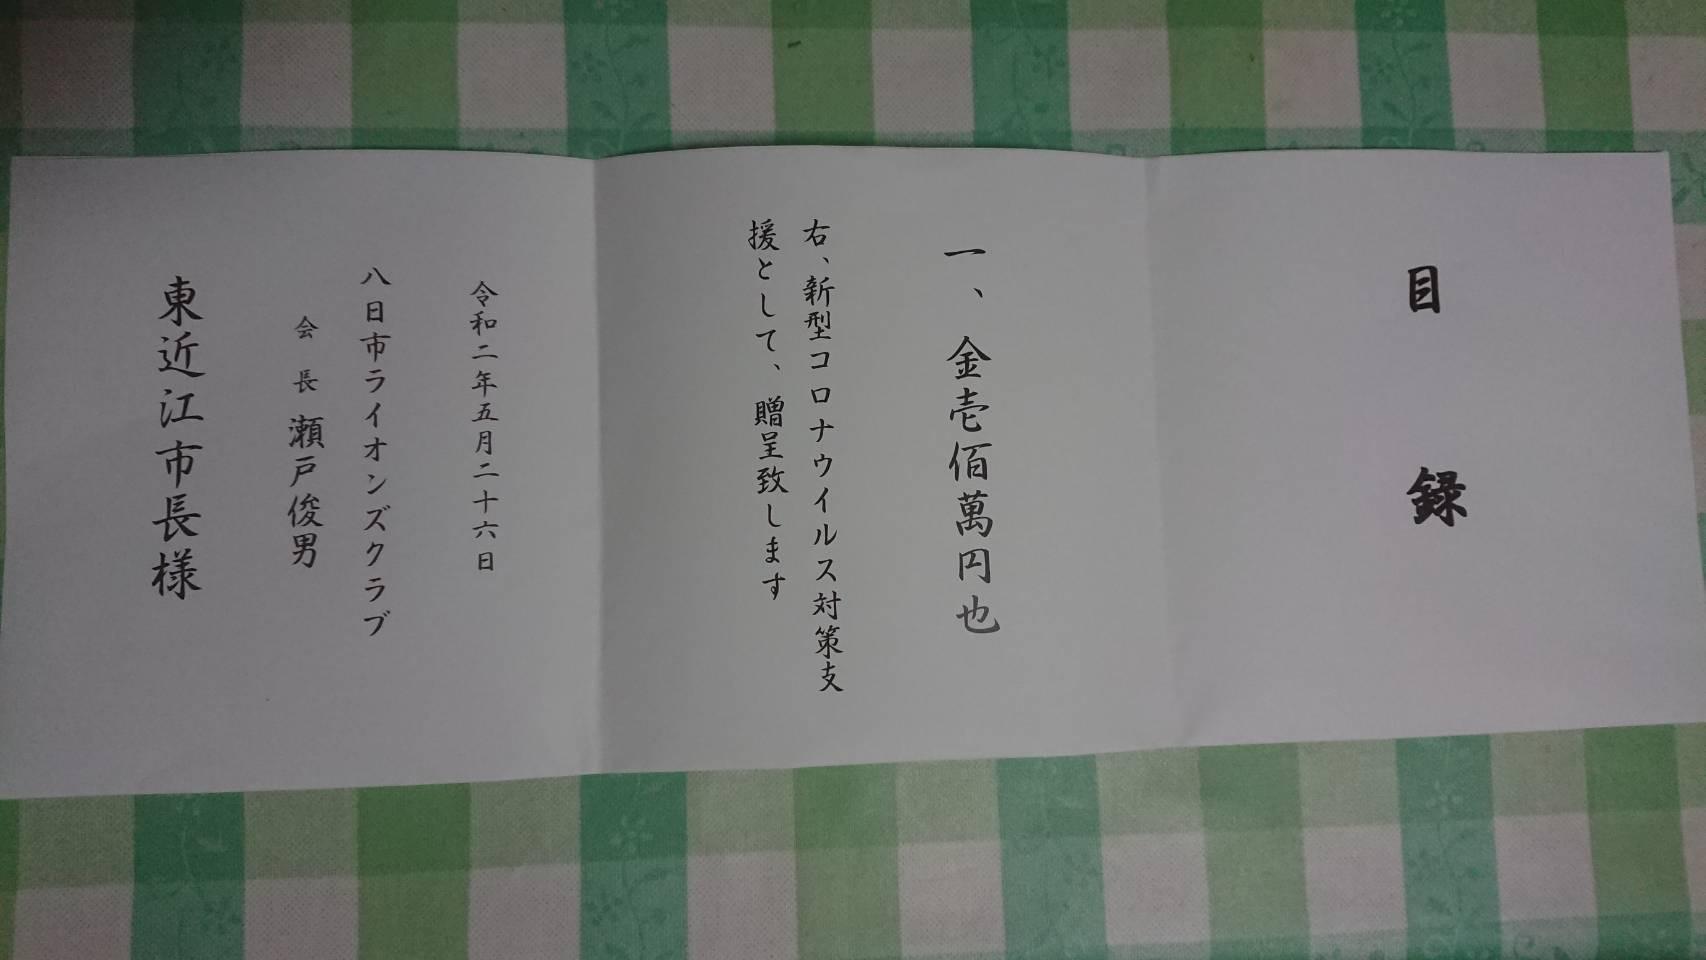 目録
一、金壱佰萬円也
右、新型コロナウイルス対策支
援として、贈呈致します
令和二年五月二十六日
八日市ライオンズクラブ
会長 瀬戸俊男
東近江市長様